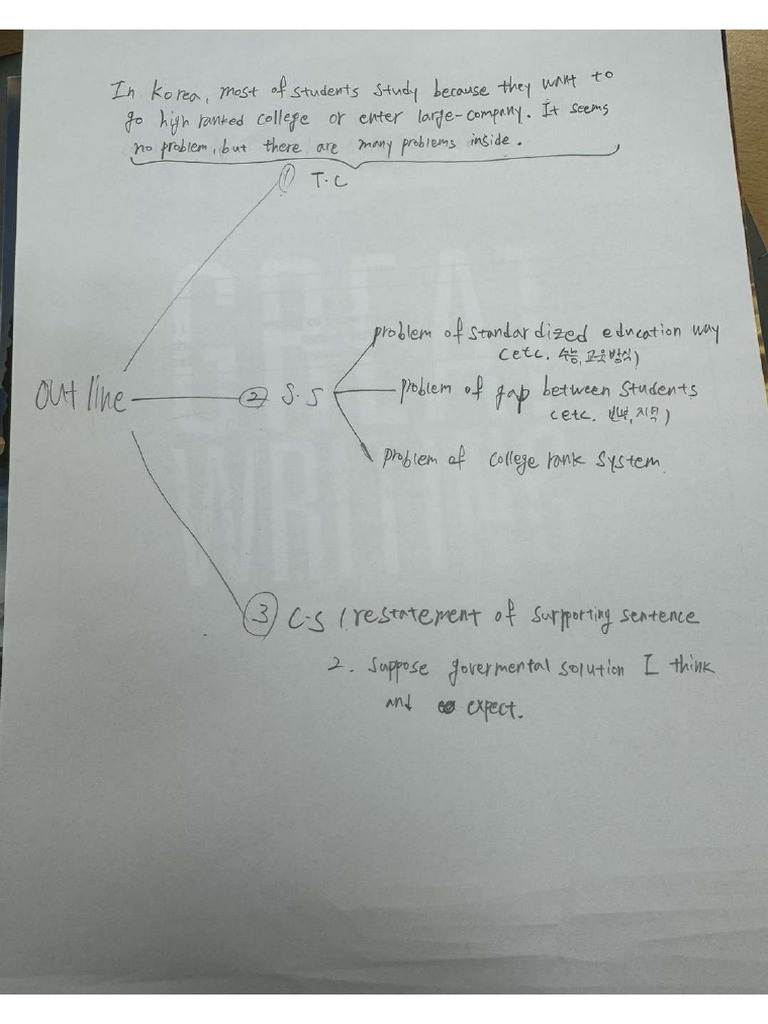 In Korea, most of students study because they want to
go high ranked college or enter large-company. It seems
no problem, but there are many problems inside.
① T.C
Outline
② S.S
problem of standardized education way
(etc. 수능, 교육방식)
problem of gap between students
(etc. 빈부, 지역)
problem of college rank system.
③ C-S 1. restatement of supporting sentence
2. suppose govermental solution I think
and expect.
GREAT
WRITING